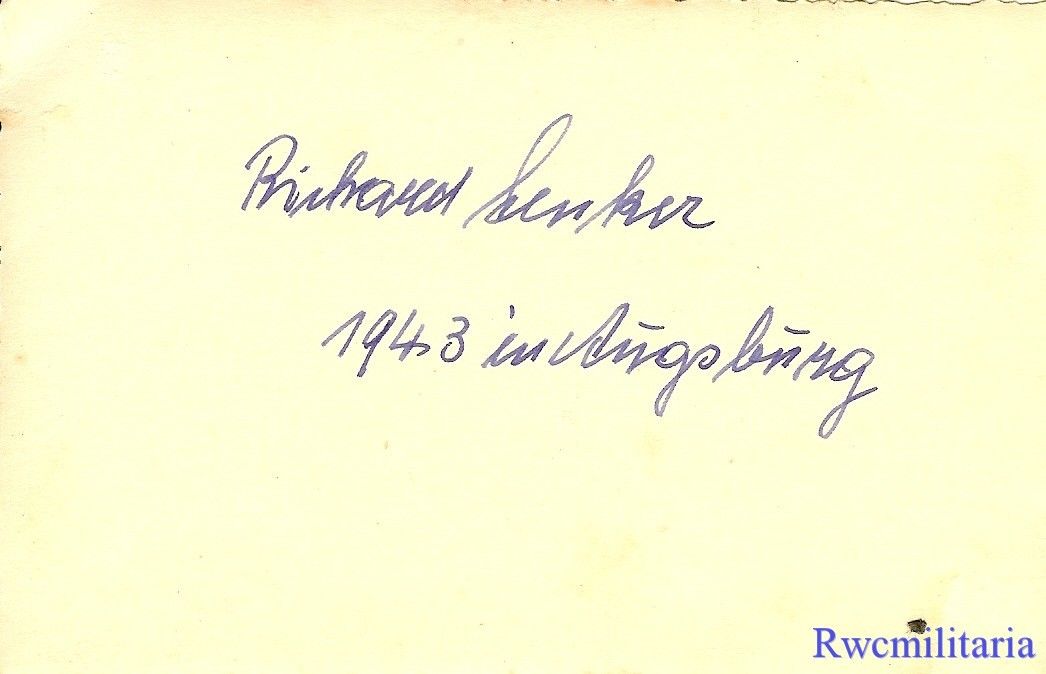 Richard Lenker
1943 in Augsburg
Rwcmilitaria